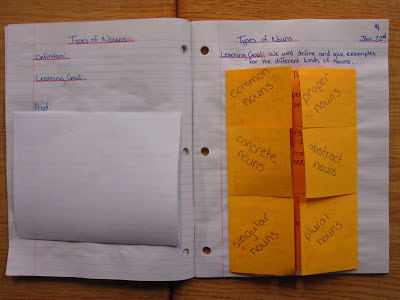 Types of Nouns
Definition:
Learning Goal:
Proof
Types of Nouns
Jan. 22nd
Learning Goal: We will define and give examples
for the different kinds of nouns.
common
nouns
proper
nouns
concrete
nouns
abstract
nouns
singular
nouns
plural
nouns